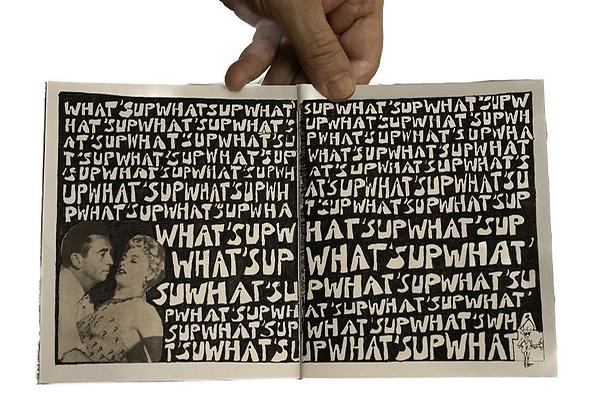 WHAT'SUPWHATSUPWHAT'SUPWHAT'SUPWHAT'SUPW
HAT'SUPWHATSUPWHAT'SUPWHAT'SUPWHAT'SUPWH
AT'SUPWHAT'SUPWHAT'SUPWHAT'SUPWHAT'SUPWHA
T'SUPWHAT'SUPWHAT'SUPWHAT'SUPWHAT'SUPWHAT
'SUPWHAT'SUPWHAT'SUPWHAT'SUPWHAT'SUPWHAT'S
UPWHAT'SUPWHAT'SUPWHAT'SUPWHAT'SUPWHAT'SU
PWHAT'SUPWHAT'SUPWHAT'SUPWHAT'SUPWHAT'SUP
WHAT'SUPWHAT'SUPWHAT'SUP
WHAT'SUPWHAT'SUPWHAT'
SUWHAT'SUPWHAT'SUPWHAT'SU
PWHAT'SUPWHAT'SUPWHAT'SUPWHAT'
SUPWHAT'SUPWHAT'SUPWHAT'SWHA
T'SUWHAT'SUPWHAT'SUPWHAT